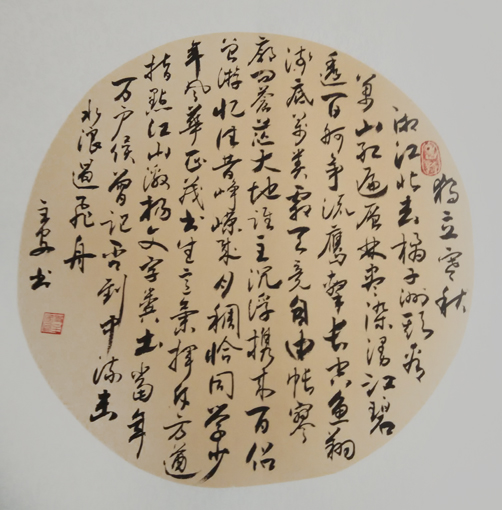 獨立寒秋
湘江北去橘子洲頭看
萬山紅遍层林盡染漫江碧
透百舸争流鹰擊长空鱼翔
浅底萬类霜天竞自由怅寥
廓问苍茫大地谁主沉浮携来百侣
曾游忆往昔峥嵘歲月稠恰同学少
年风華正茂书生意氣揮斥方遒
指點江山激扬文字糞土當年
万户侯曾记否到中流击
水浪遏飞舟
书